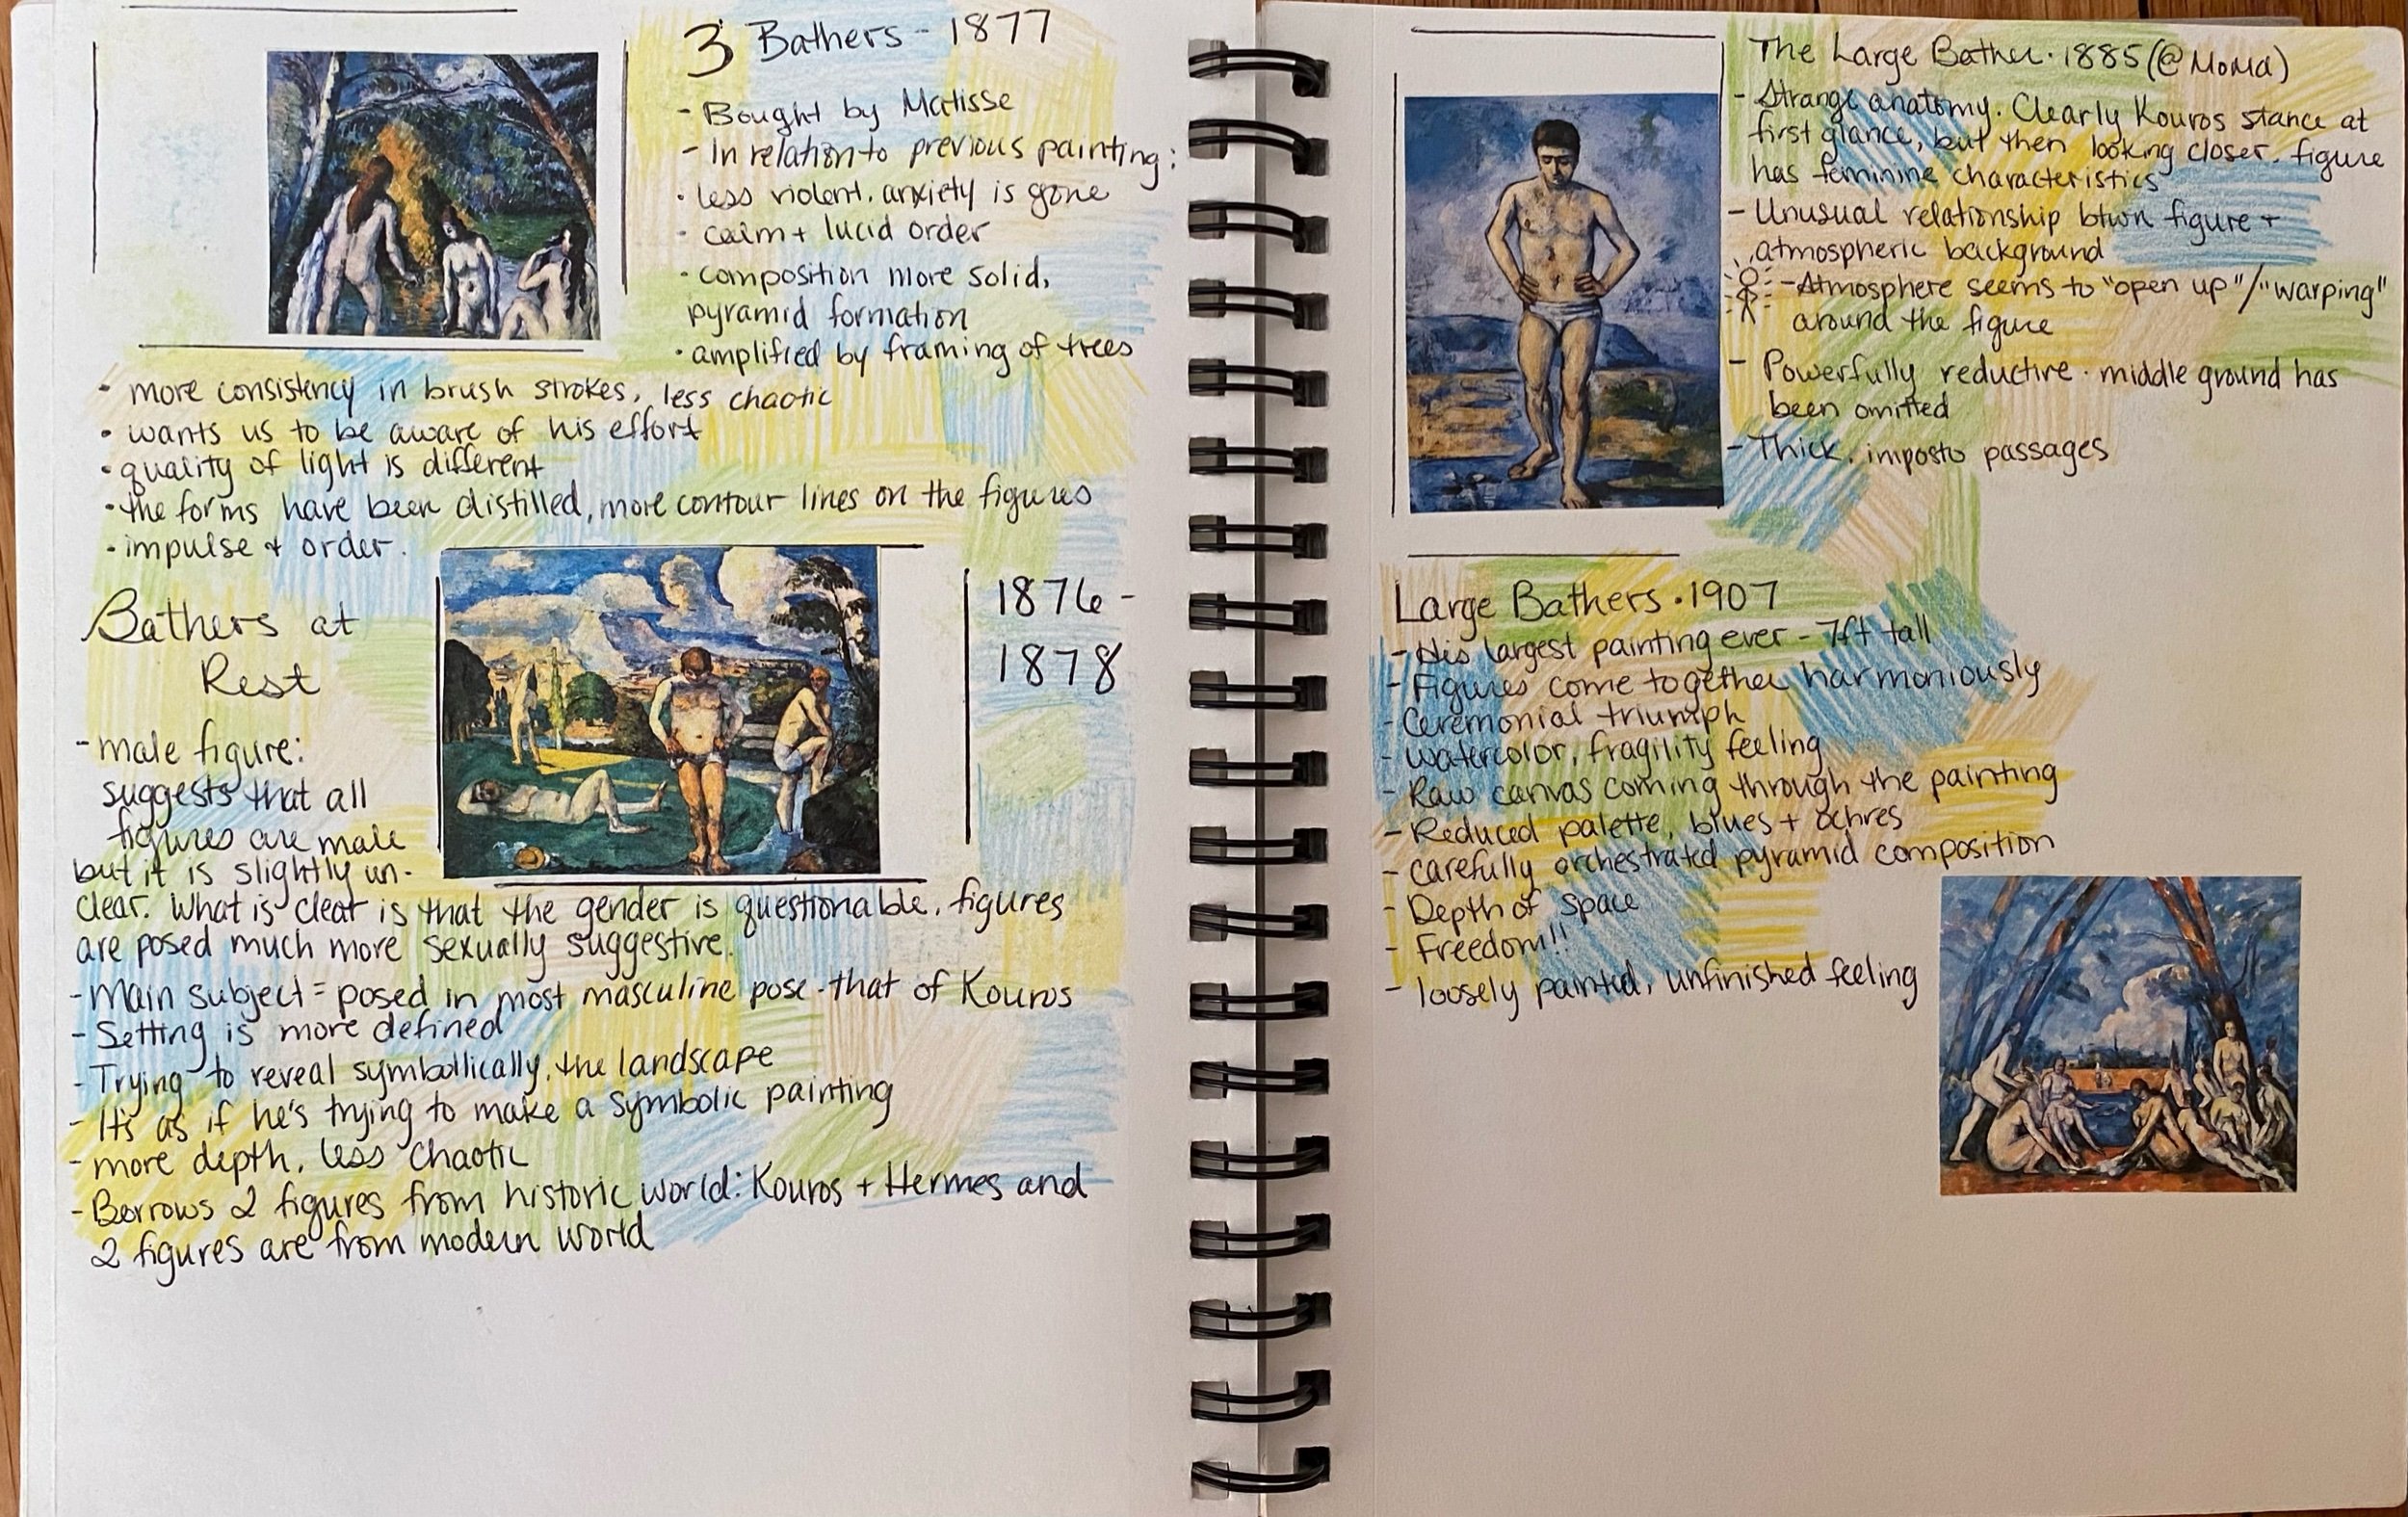 3 Bathers - 1877
- Bought by Matisse
- In relation to previous painting:
· less violent, anxiety is gone
· calm + lucid order
· composition more solid,
pyramid formation
· amplified by framing of trees
· more consistency in brush strokes, less chaotic
· wants us to be aware of his effort
· quality of light is different
· the forms have been distilled, more contour lines on the figures
· impulse + order.
Bathers at
Rest
1876-
1878
- male figure:
suggests that all
figures are male
but it is slightly un-
clear. What is clear is that the gender is questionable, figures
are posed much more sexually suggestive.
- Main subject = posed in most masculine pose - that of Kouros
- Setting is more defined
- Trying to reveal symbollically, the landscape
- It's as if he's trying to make a symbolic painting
- more depth, less chaotic
- Borrows 2 figures from historic world: Kouros + Hermes and
2 figures are from modern world
The Large Bather · 1885 (@ MoMa)
- Strange anatomy. Clearly Kouros stance at
first glance, but then looking closer, figure
has feminine characteristics
- Unusual relationship btwn figure +
atmospheric background
- Atmosphere seems to "open up"/"warping"
around the figure
- Powerfully reductive · middle ground has
been omitted
- Thick, imposto passages
Large Bathers · 1907
- His largest painting ever - 7ft tall
- Figures come together harmoniously
- Ceremonial triumph
- watercolor, fragility feeling
- Raw canvas coming through the painting
- Reduced palette, blues + ochres
- carefully orchestrated pyramid composition
- Depth of space
- Freedom!!
- loosely painted, unfinished feeling